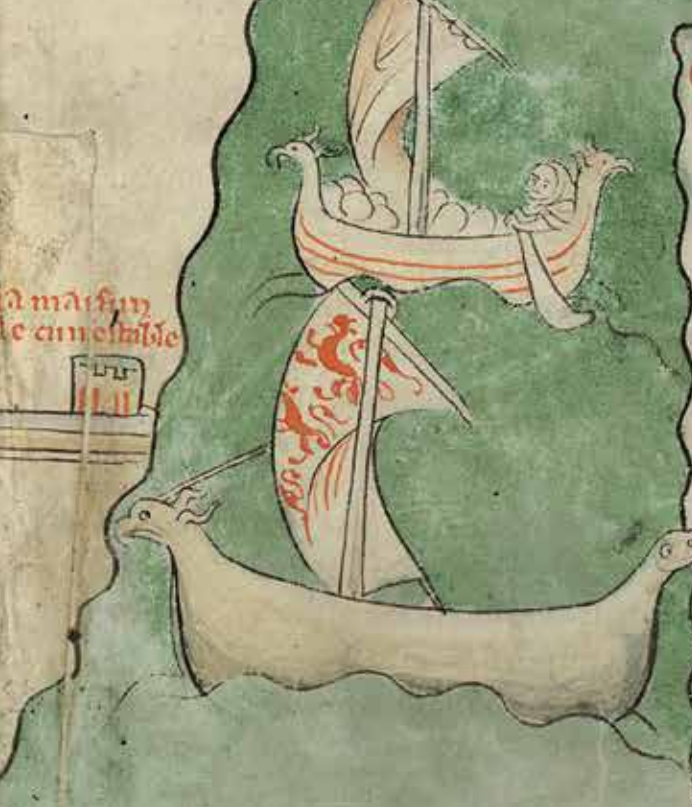 a maisun
le cunestable